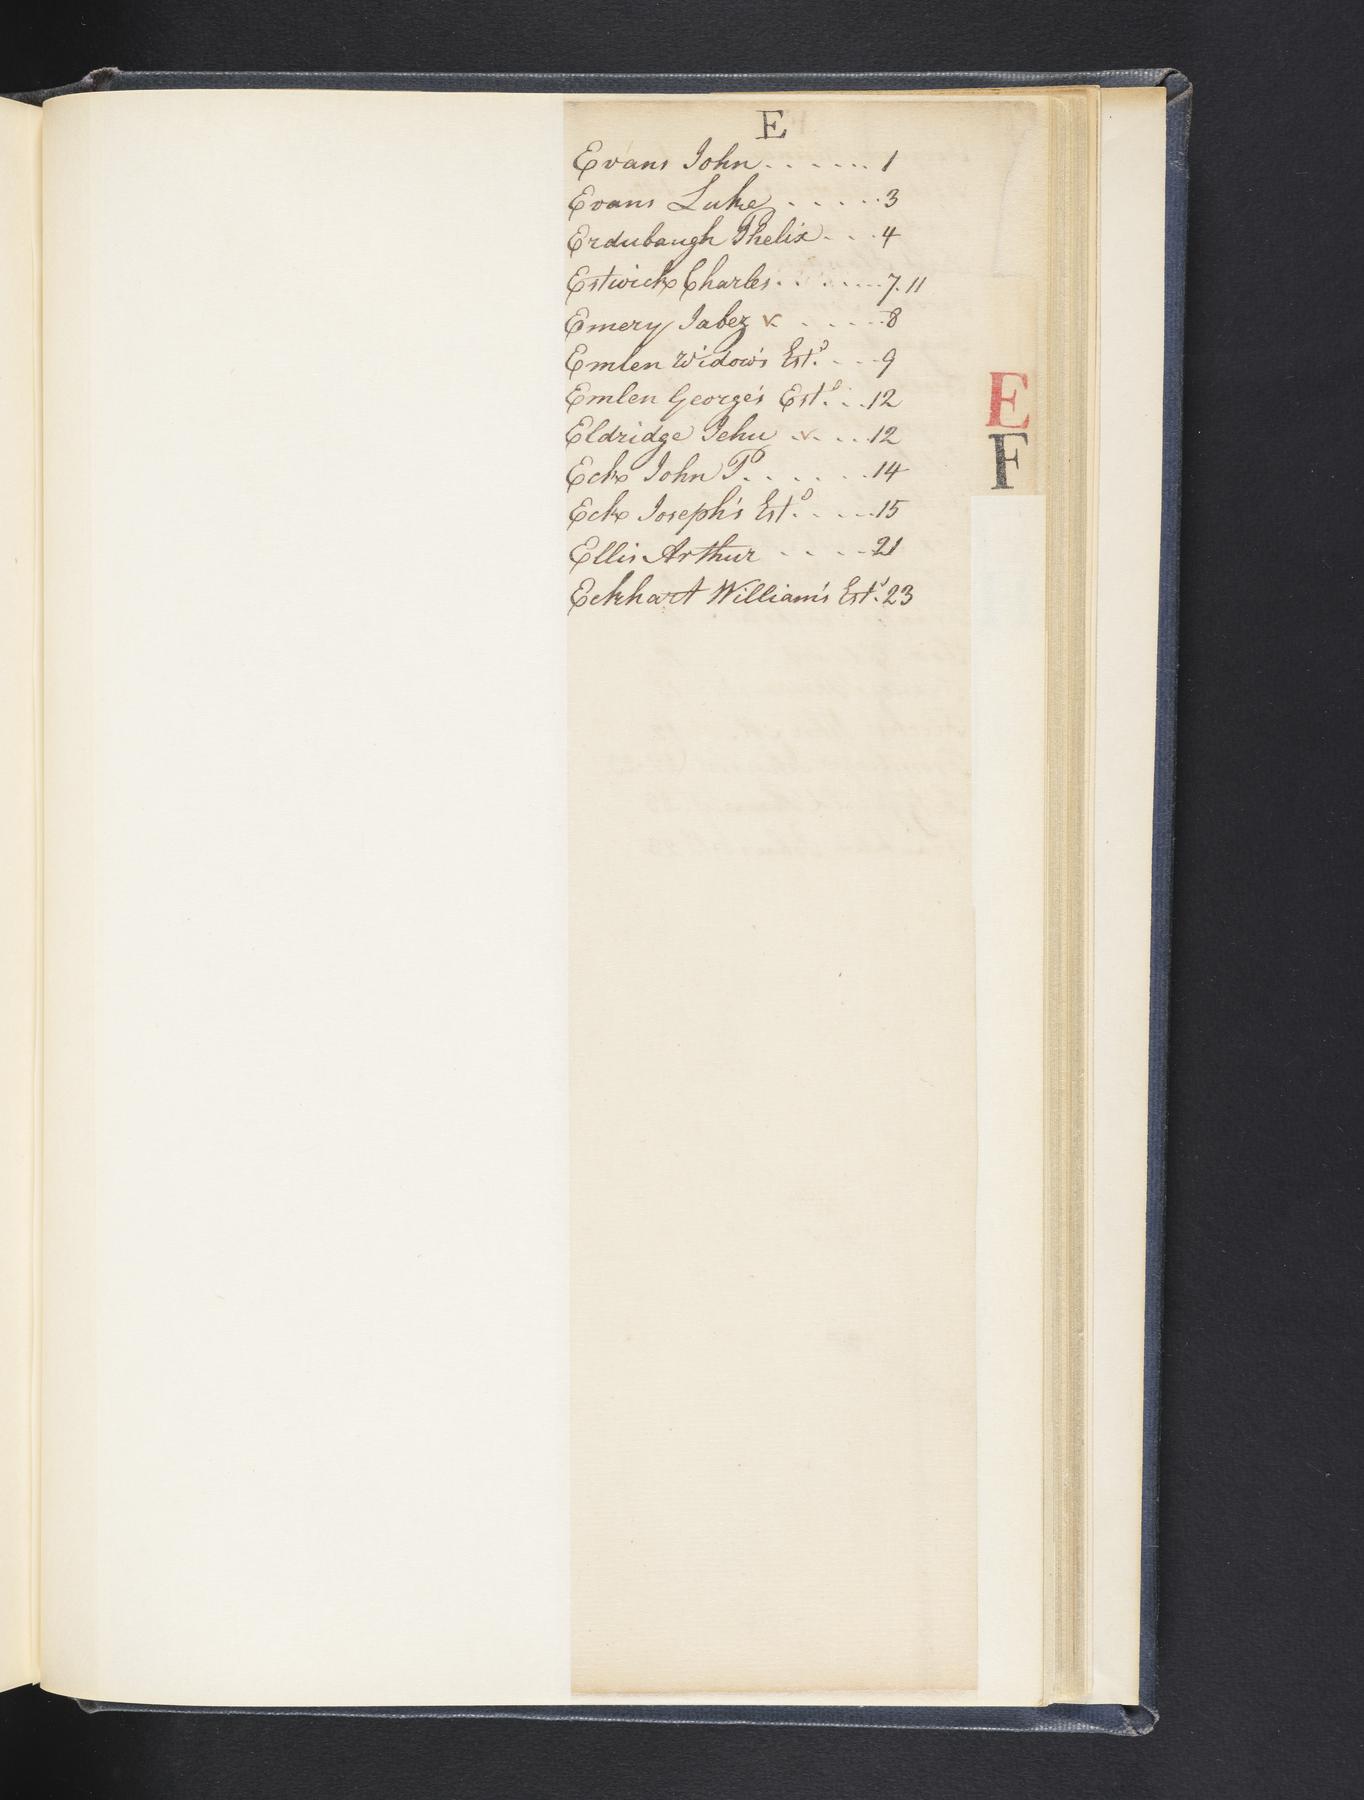 E
Evans John . . . . . . 1
Evans Luke . . . . . 3
Erdubaugh Phelix . . . 4
Estwick Charles . . . . . . 7. 11
Emery Jabez v . . . . . 8
Emlen Widow's Est.º . . . 9
Emlen George's Est.º . . 12
Eldridge Jehu . v . . . 12
Eck John P. . . . . . 14
Eck Joseph's Est.º . . . . 15
Ellis Arthur . . . . . 21
Eckhart William's Est.º 23
E
F